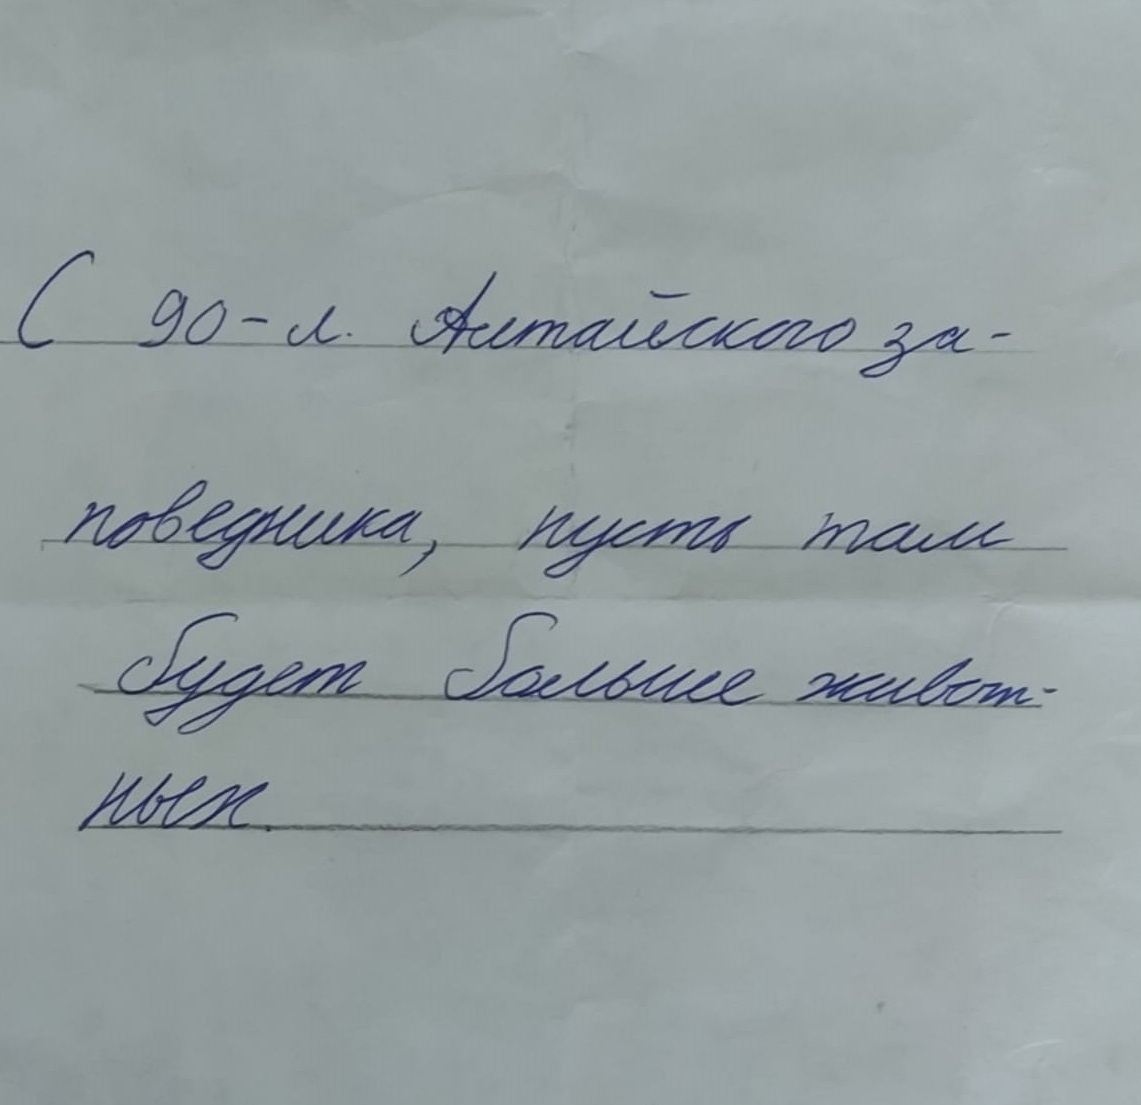 С 90-л. Алтайского за-
поведника, пусть там
будет больше живот-
ных.